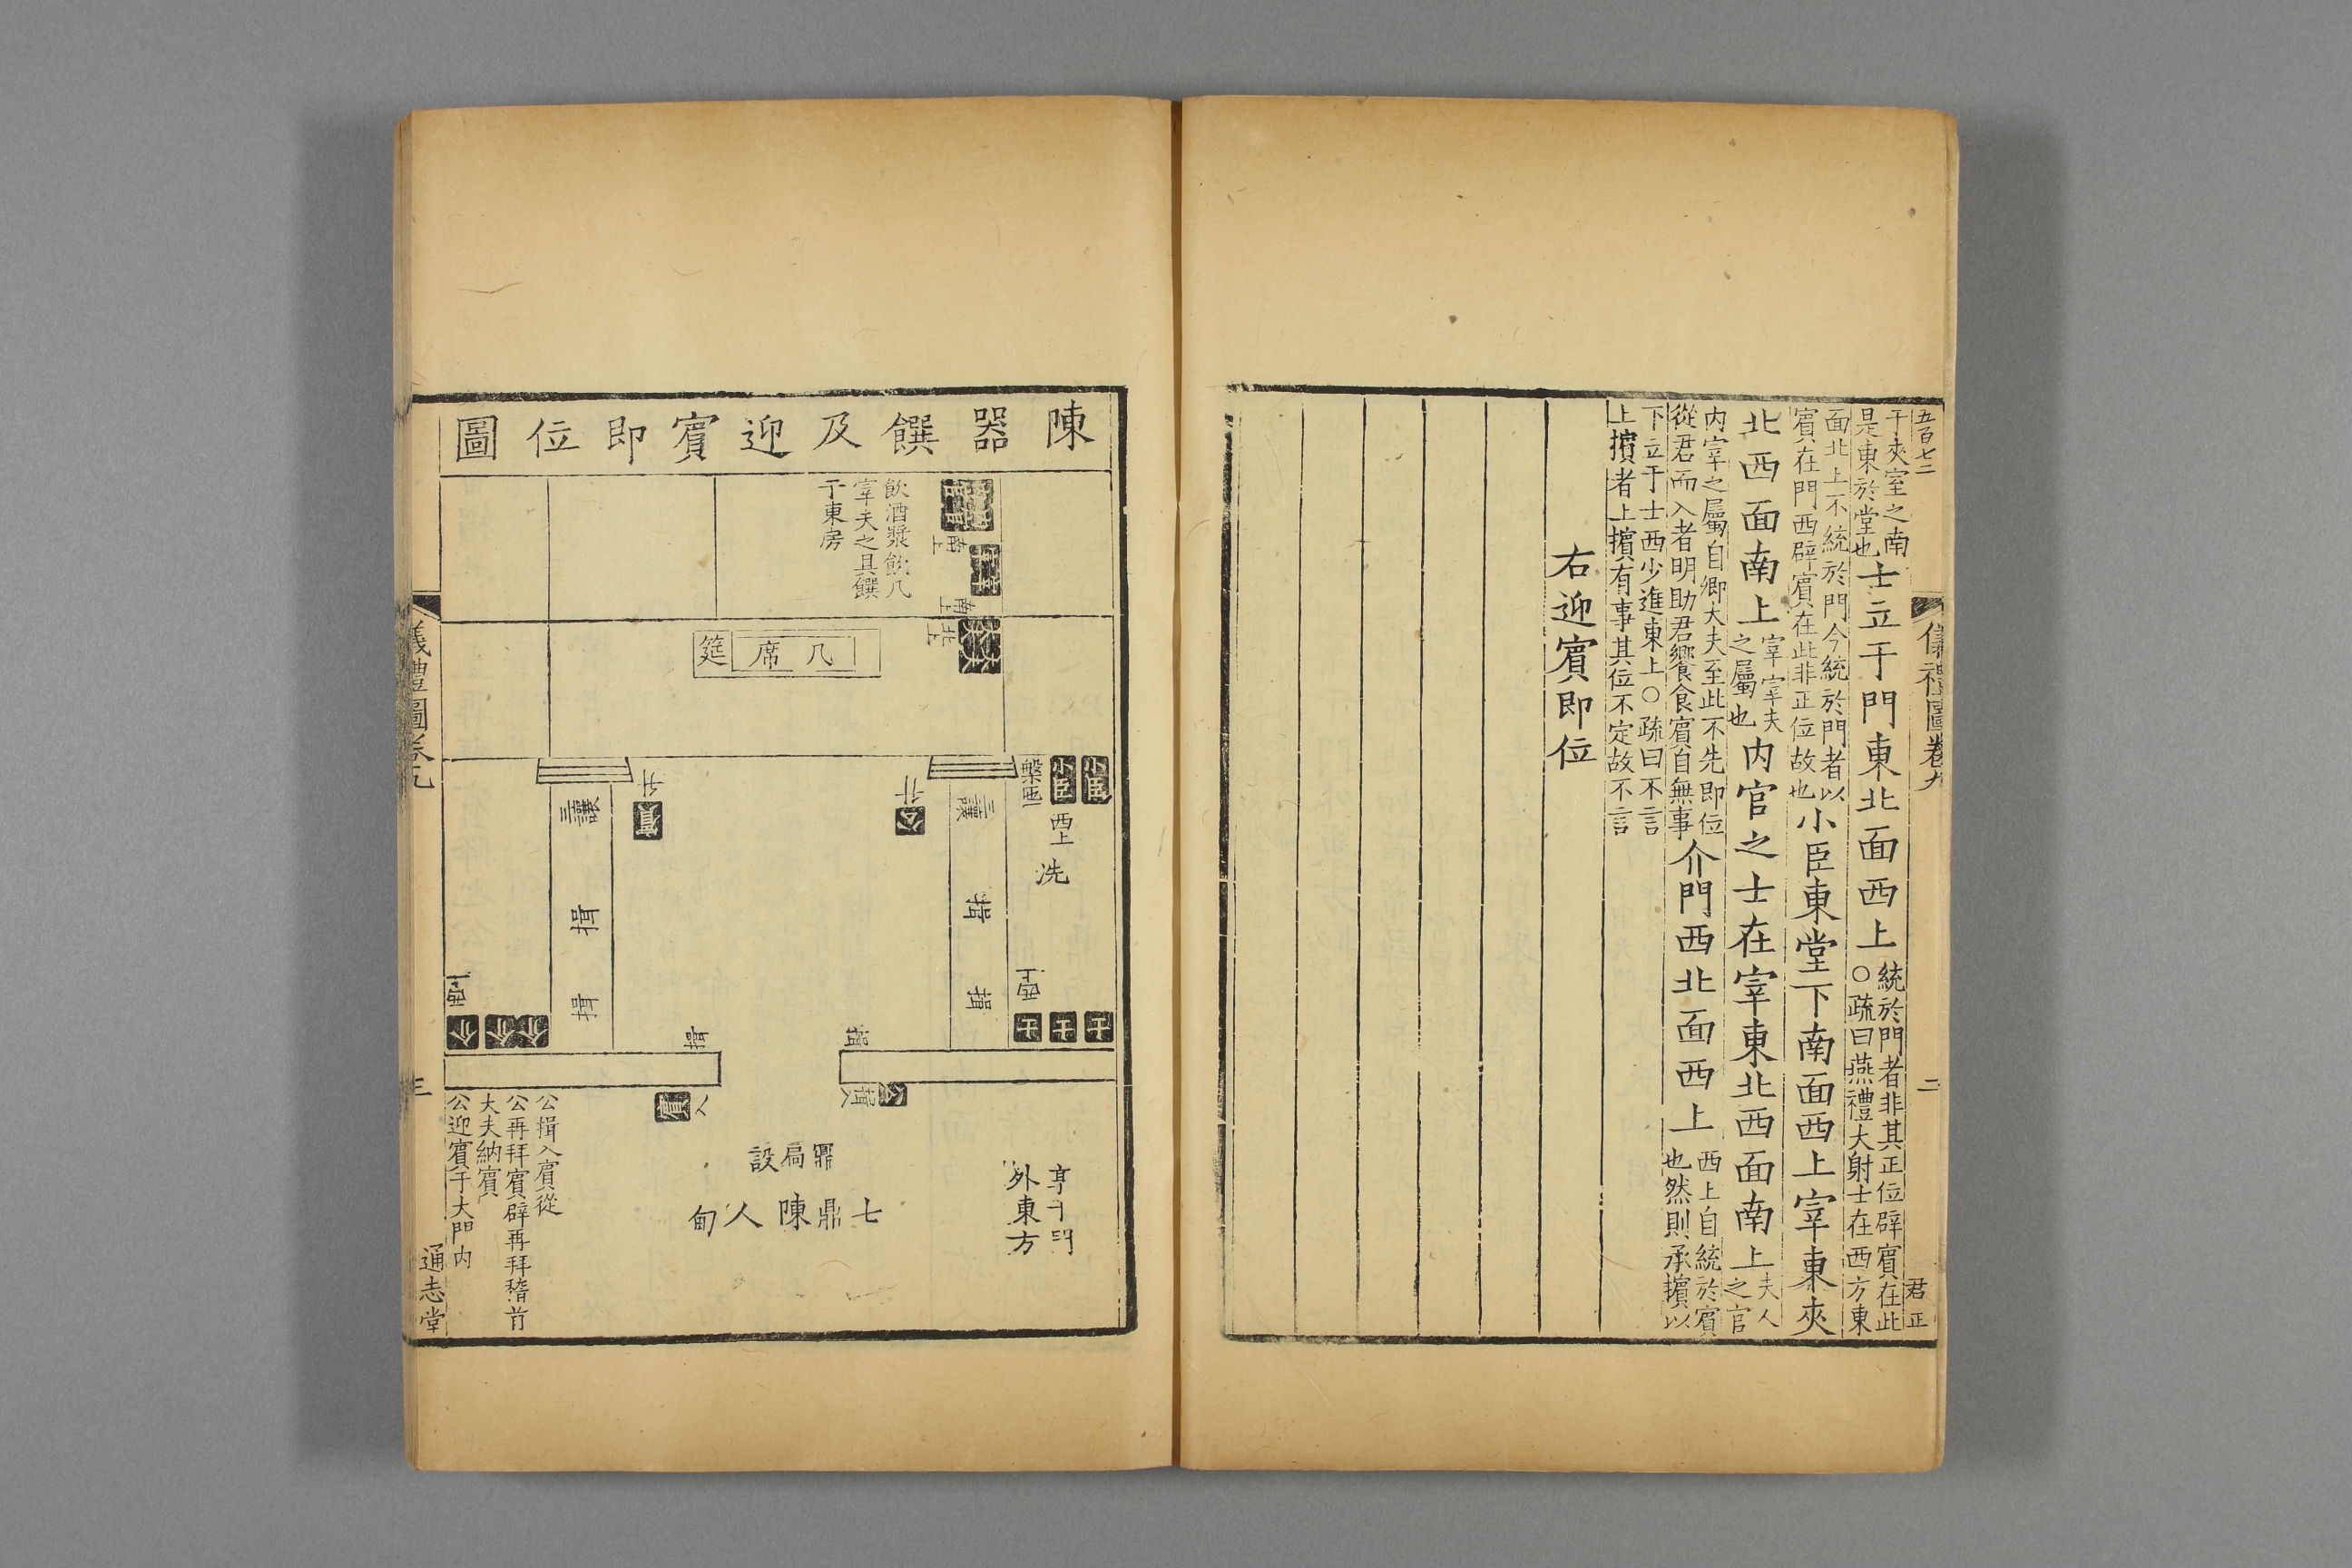 五百七二
儀禮圖卷九
二
君正
于夾室之南
是東於堂也
士立于門東北面西上
統於門者非其正位辟賓在此
○疏曰燕禮大射士在西方東
面北上不統於門今統於門者以
賓在門西辟賓在此非正位故也
小臣東堂下南面西上宰東夾
北西面南上
宰宰夫
之屬也
内官之士在宰東北西面南上
夫人
之官
内宰之屬自卿大夫至此不先即位
從君而入者明助君饗食賓自無事
介門西北面西上
西上自統於賓
也然則承擯以
下立于士西少進東上○疏曰不言
上擯者上擯有事其位不定故不言
右迎賓即位
陳器饌及迎賓即位圖
飲酒漿飲几
宰夫之具饌
于東房
南上
北上
筵
席几
升
賓
三讓
揖
揖
升
公
三讓
揖
揖
槃匜
西上
洗
士
士
士
介
介
介
揖
賓
入
公
鼎扃設
七鼎陳人甸
亨于門
外東方
公揖入賓從
公再拜賓辟再拜稽首
大夫納賓
公迎賓于大門内
儀禮圖卷九
三
通志堂